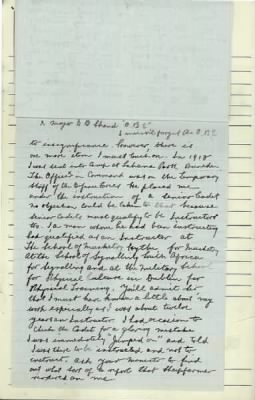 & Major D B Shand "O.B.E"
I mustn't forget the O.B.E
to insignificance. However, there is
one more item I must touch on. In 1918
I was sent into Camp at
The Officer in Command was on the temporary
Staff of the office. He placed me
under the instruction of a Senior Cadet
no objection could be taken to that because
Senior Cadets must qualify to be Instructors
too. I a man whom he had been instructing
had qualified as an Instructor at
The School of Musketry Hythe for Musketry
At the School of Signalling South Africa
for Signalling and at the Military School
for Physical Culture in Dublin for
Physical Training. You'll admit Sir
that I must have known a little about my
work especially as I was about twelve
years an Instructor. I had occasion to
check the Cadet for a glaring mistake
I was immediately "jumped on" and told
I was there to be instructed, and not to
instruct. Ask your Minister to find
out what sort of a report that
on me